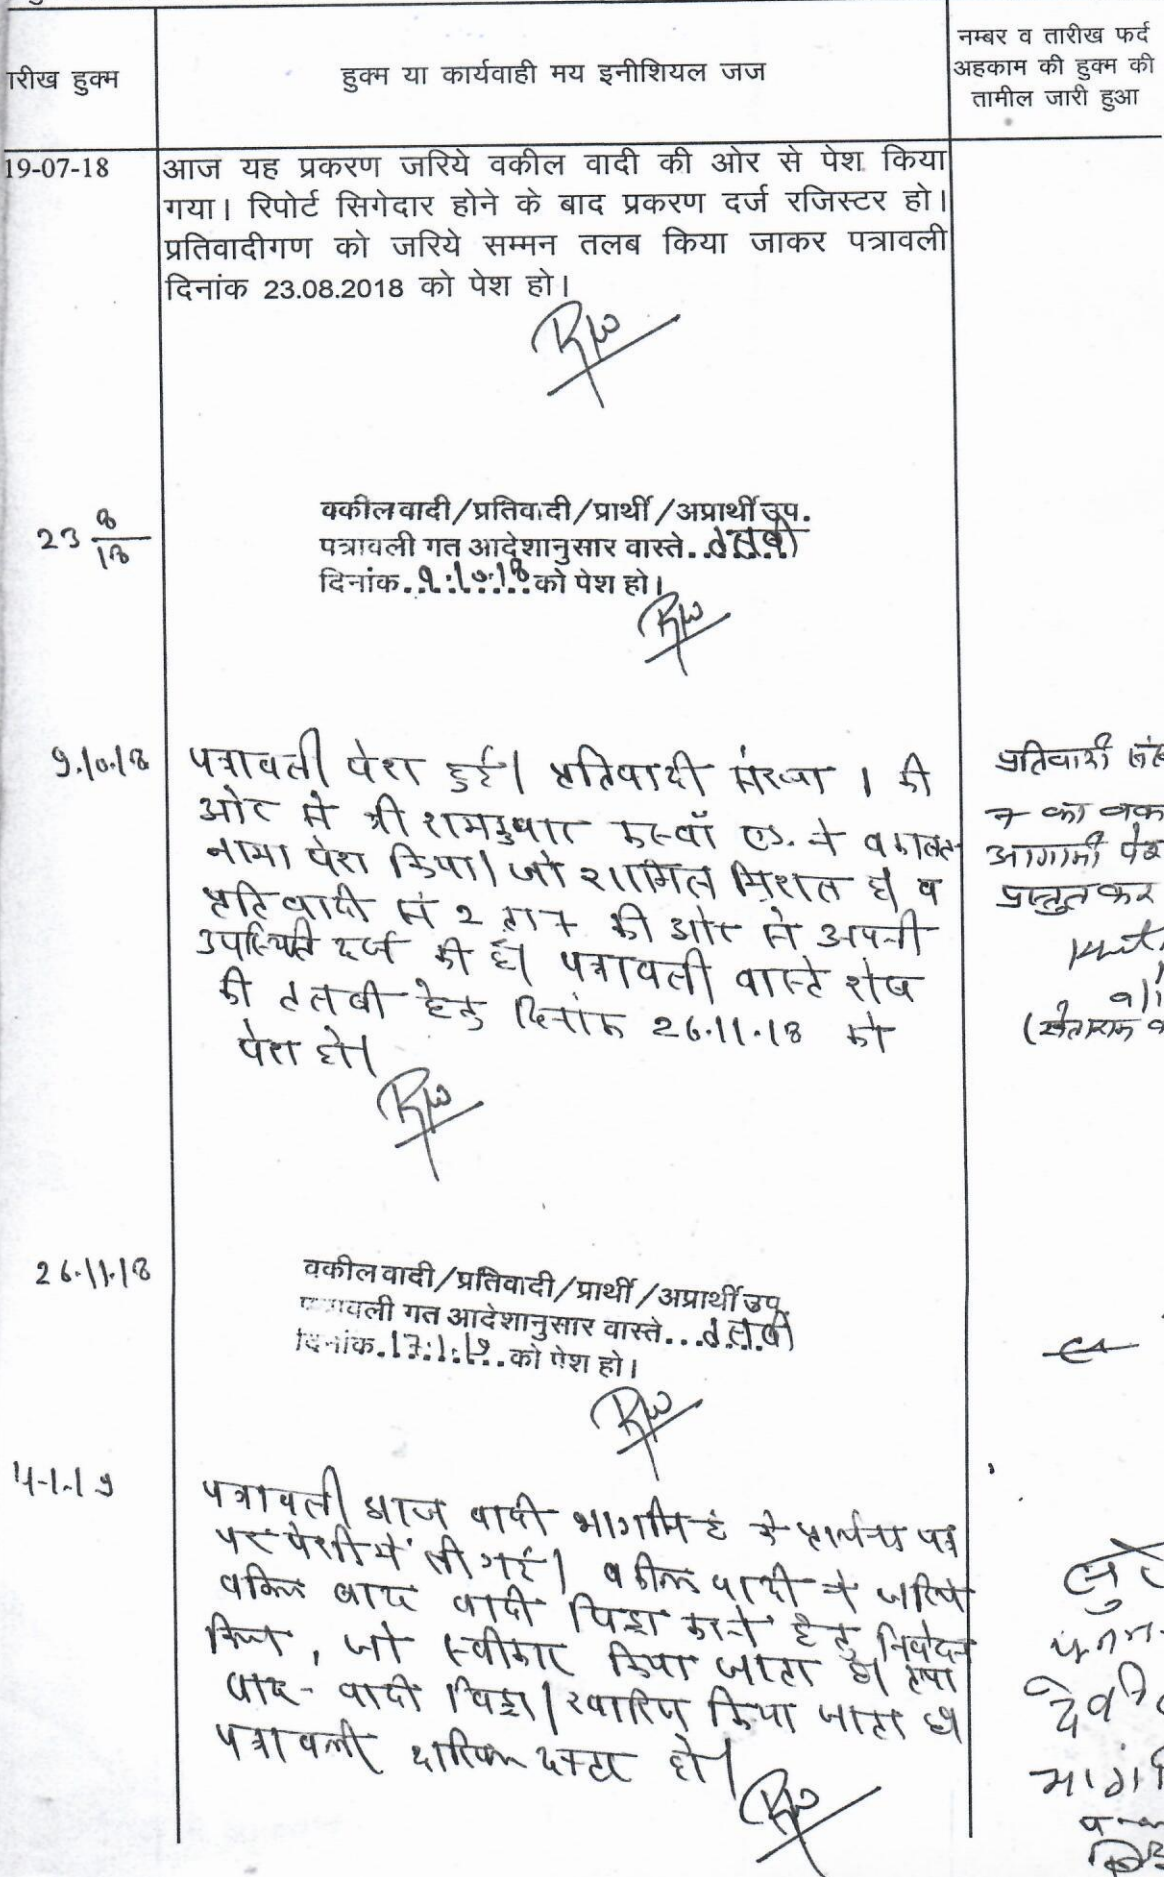 नम्बर व तारीख फर्द
अहकाम की हुक्म की
तामील जारी हुआ
हुक्म या कार्यवाही मय इनीशियल जज
ारीख हुक्म
19-07-18
आज यह प्रकरण जरिये वकील वादी की ओर से पेश किया
गया। रिपोर्ट सिगेदार होने के बाद प्रकरण दर्ज रजिस्टर हो।
प्रतिवादीगण को जरिये सम्मन तलब किया जाकर पत्रावली
दिनांक 23.08.2018 को पेश हो।
23 8/18
वकील वादी/प्रतिवादी/प्रार्थी/अप्रार्थी उप.
पत्रावली गत आदेशानुसार वास्ते..तलबी
दिनांक.9.10.18...को पेश हो।
9.10.18
पत्रावली पेश हुई। प्रतिवादी संख्या 1 की
ओर से श्री रामकुमार कस्वाँ एड. ने वकालत
नामा पेश किया। जो शामिल मिशल है। व
प्रतिवादी सं 2 ता 7 की ओर से अपनी
उपस्थिति दर्ज की है। पत्रावली वास्ते शेष
की तलबी हेतु दिनांक 26.11.18 को
पेश हो।
प्रतिवादी सं
7 का वक
आगामी पे
प्रस्तुत कर
26.11.18
वकील वादी/प्रतिवादी/प्रार्थी/अप्रार्थी उप.
पत्रावली गत आदेशानुसार वास्ते...तलबी
दिनांक.17.1.19..को पेश हो।
4-1-19
पत्रावली आज वादी के प्रार्थना पत्र
पर पेशी में ली गई। वकील वादी ने जरिये
वकील वाद वादी विड्रा करने हेतु निवेदन
किया, जो स्वीकार किया जाता है। तथा
वाद-वादी विड्रा/खारिज किया जाता है।
पत्रावली दाखिल दफ्तर हो।
देवी